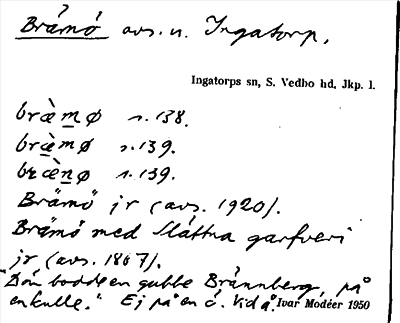 Brämö avs. n. Ingatorp.
Ingatorps sn, S. Vedbo hd, Jkp. l.
bræ̀mø s. 138.
bræ̀mø s. 139.
bræ̀nø s. 139.
Brämö jr (avs. 1920).
Brämö med Slättna garfveri
jr (avs. 1867).
"Där bodde en gubbe Brännberg, på
en kulle." Ej på en ö. Vid å. Ivar Modéer 1950